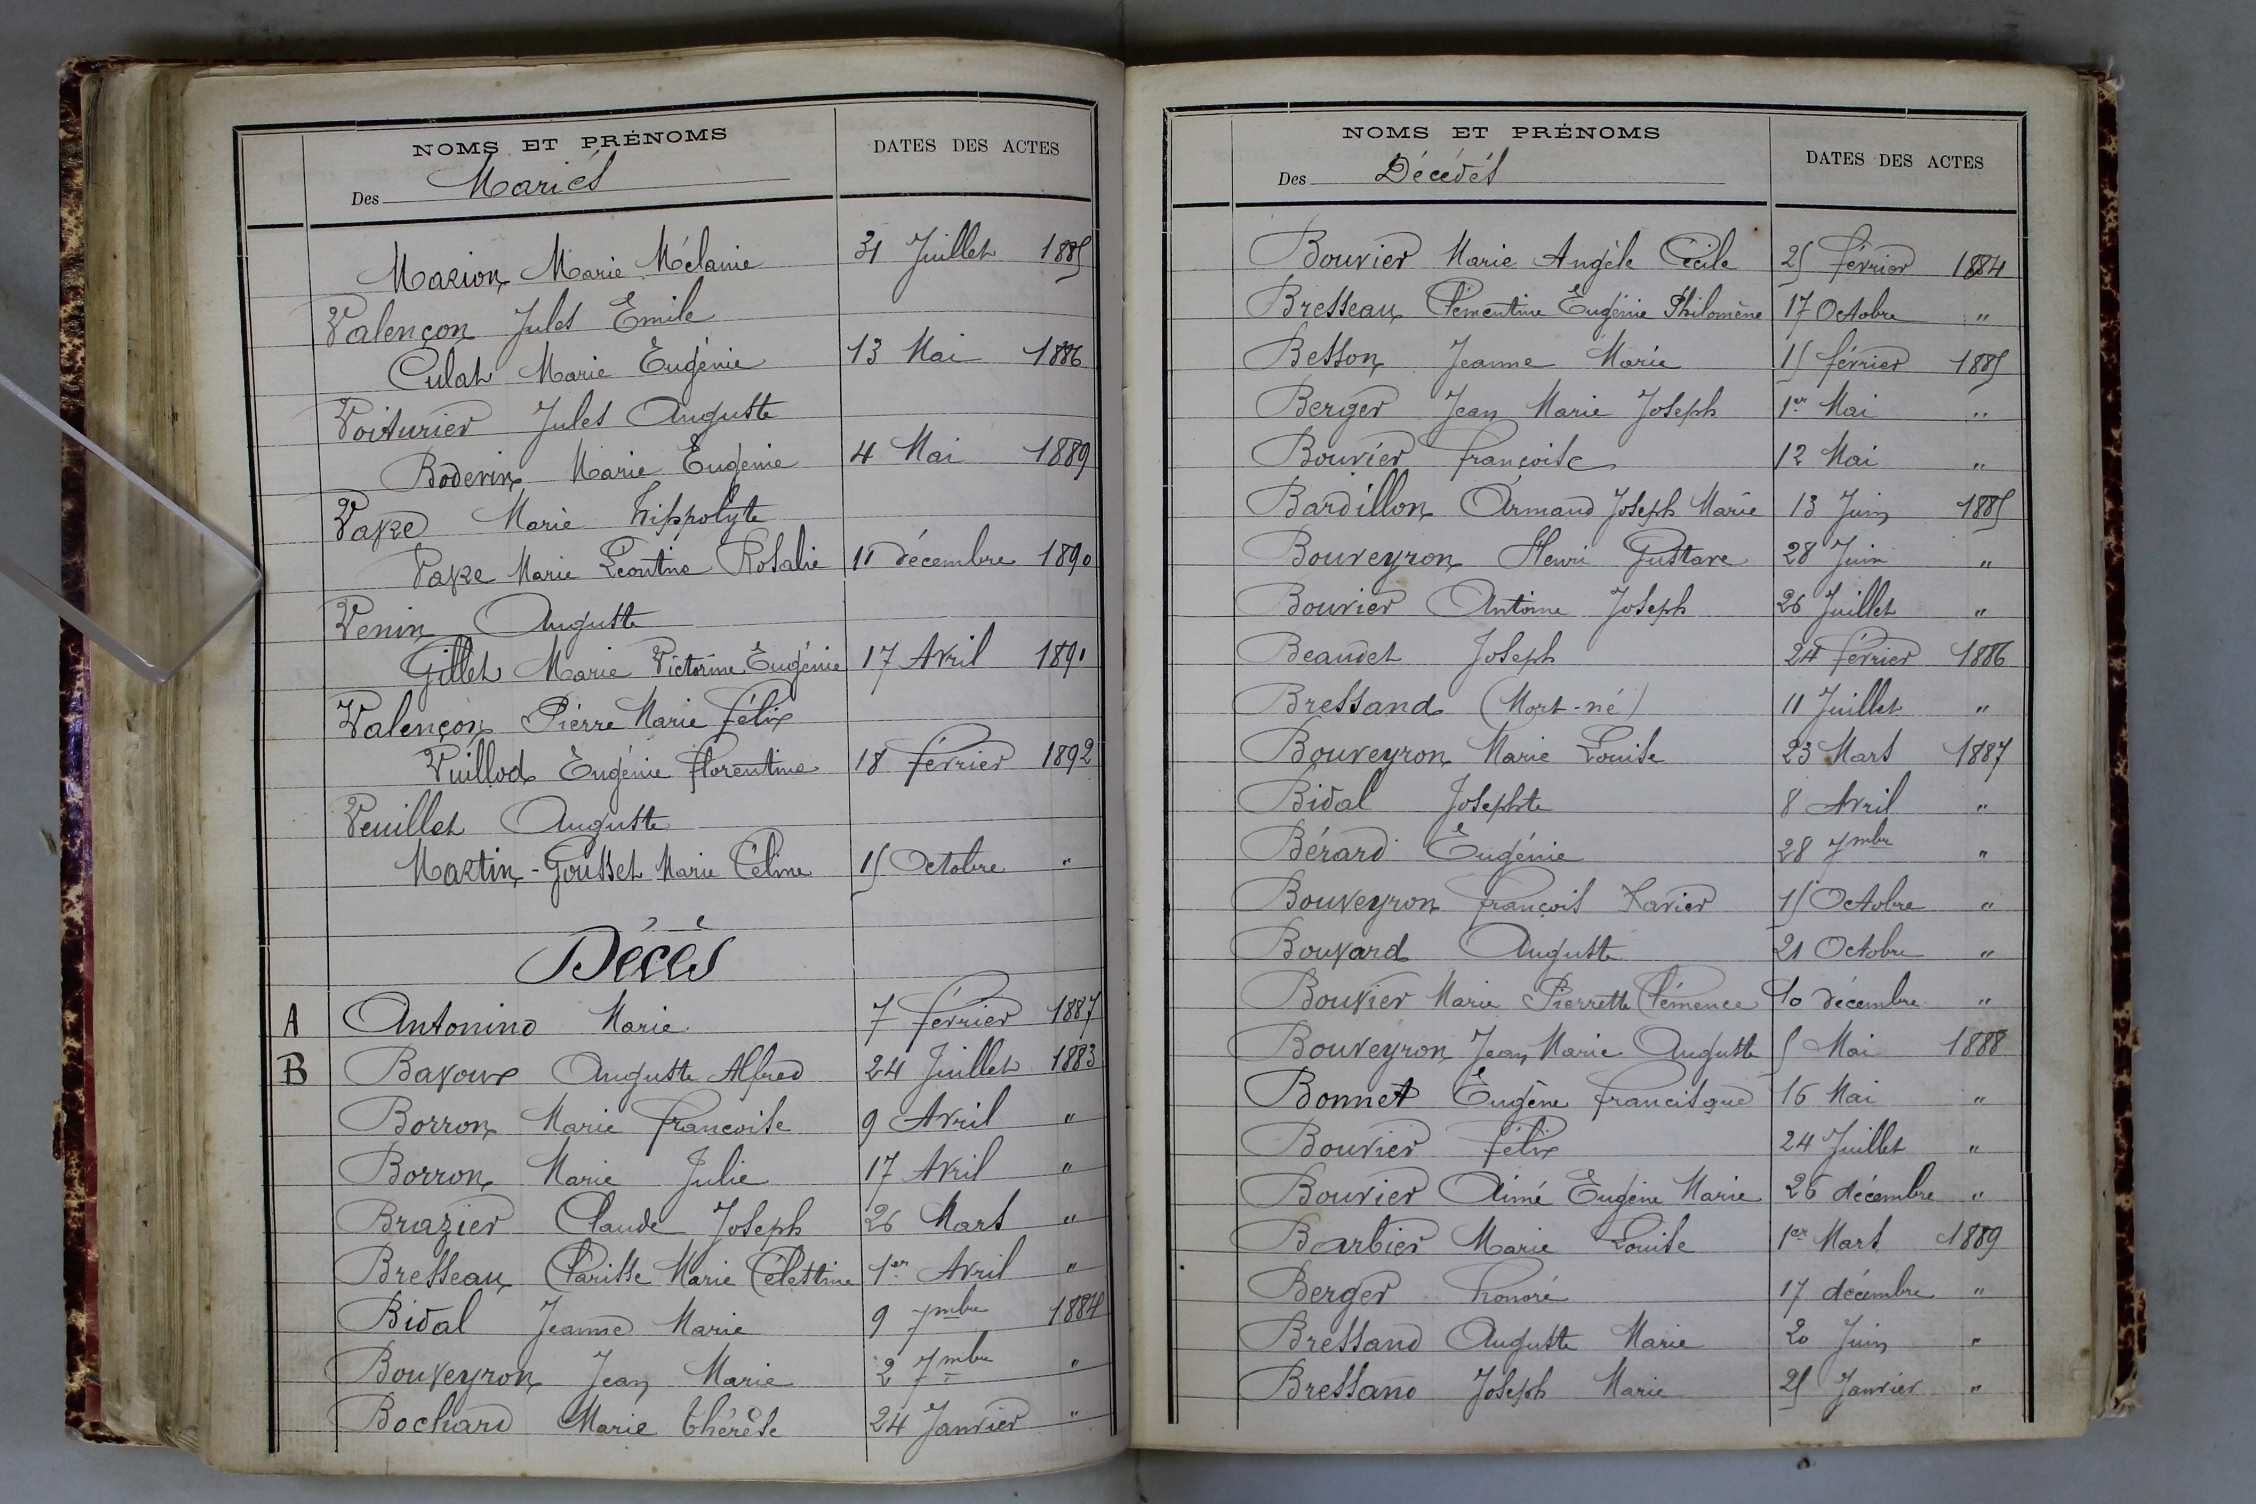 NOMS ET PRÉNOMS
Des Mariés
DATES DES ACTES
Marion Marie Mélanie 31 Juillet 1885
Valençon Jules Emile
Culat Marie Eugénie 13 Mai 1886
Voiturier Jules Auguste
Boderin Marie Eugénie 4 Mai 1889
Vare Marie hippolyte
Vare Marie Léontine Rosalie 11 décembre 1890
Venin Auguste
Gillet Marie Victorine Eugénie 17 Avril 1891
Valençon Pierre Marie félix
Vuillod Eugénie florentine 18 février 1892
Veuillet Auguste
Martin-Gousset Marie Céline 15 Octobre "
Décès
A Antonino Marie 7 février 1887
B Bavoux Auguste Alfred 24 Juillet 1883
Borron Marie francoise 9 Avril "
Borron Marie Julie 17 Avril "
Brazier Claude Joseph 26 Mars "
Bresseau Clarisse Marie Célestine 1er Avril "
Bidal Jeanne Marie 9 7mbre 1884
Bouveyron Jean Marie 2 7mbre "
Bochard Marie thérèse 24 Janvier "
NOMS ET PRÉNOMS
Des Décédés
DATES DES ACTES
Bouvier Marie Angèle Cécile 25 février 1884
Bresseau Clementine Eugénie Philomène 17 Octobre "
Besson Jeanne Marie 15 février 1885
Berger Jean Marie Joseph 1er Mai "
Bouvier françoise 12 Mai "
Bardillon Armand Joseph Marie 13 Juin 1885
Bouveyron Henri Gustave 28 Juin "
Bouvier Antoine Joseph 26 Juillet "
Beaudet Joseph 24 février 1886
Bressand (Mort-né) 11 Juillet "
Bouveyron Marie Louise 23 Mars 1887
Bidal Josephte 8 Avril "
Bérard Eugénie 28 7mbre "
Bouveyron françois Xavier 15 Octobre "
Bouvard Auguste 21 Octobre "
Bouvier Marie Pierrette Clémence 10 décembre "
Bouveyron Jean Marie Auguste 5 Mai 1888
Bonnet Eugène francisque 16 Mai "
Bouvier félix 24 Juillet "
Bouvier Aimé Eugène Marie 26 décembre "
Barbier Marie Louise 1er Mars 1889
Berger honoré 17 décembre "
Bressand Auguste Marie 20 Juin "
Bressand Joseph Marie 25 Janvier "